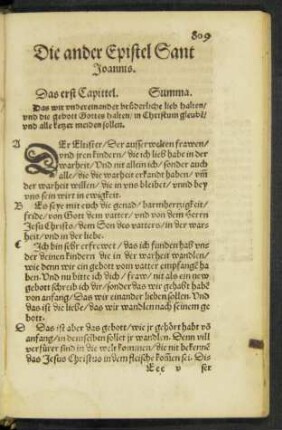 809
Die ander Epistel Sant
Joannis.
Das erst Capittel. Summa.
Das wir vndereinander brůderliche lieb halten/
vnd die gebott Gottes halten/ in Christum gleubē/
vnd alle ketzer meiden sollen.
A DEr Eltister/ Der ausserwelten frawen/
vnd jren kindern/ die ich lieb habe in der
warheit/ Vnd nit allein ich/ sonder auch
alle/ die die warheit erkandt haben/ vm̄
der warheit willen/ die in vns bleibet/ vnnd bey
vns sein wirt in ewigkeit.
B Es seye mit euch die genad/ barmhertzigkeit/
fride/ von Gott dem vatter/ vnd von dem Herrn
Jesu Christo/ dem Son des vatters/ in der war-
heit/ vnd in der liebe.
C Ich bin seer erfrewet/ das ich funden hab vns
der deinen kindern/ die in der warheit wandlen/
wie denn wir ein gebott vom vatter empfangē ha
ben. Vnd nu bitte ich dich/ fraw/ nit als ein new
gebott schreib ich dir/ sonder das wir gehabt habē
von anfang/ Das wir einander lieben sollen. Vnd
das ist die liebe/ das wir wandlen nach seinem ge
bott.
D Das ist aber das gebott/ wie jr gehört habt vō
anfang/ in demselben sollet jr wandlen. Denn vill
verfürer sind in die welt kommen/ die nit bekennē
das Jesus Christus in dem fleische kom̄en sei. Dis
Eee v ser